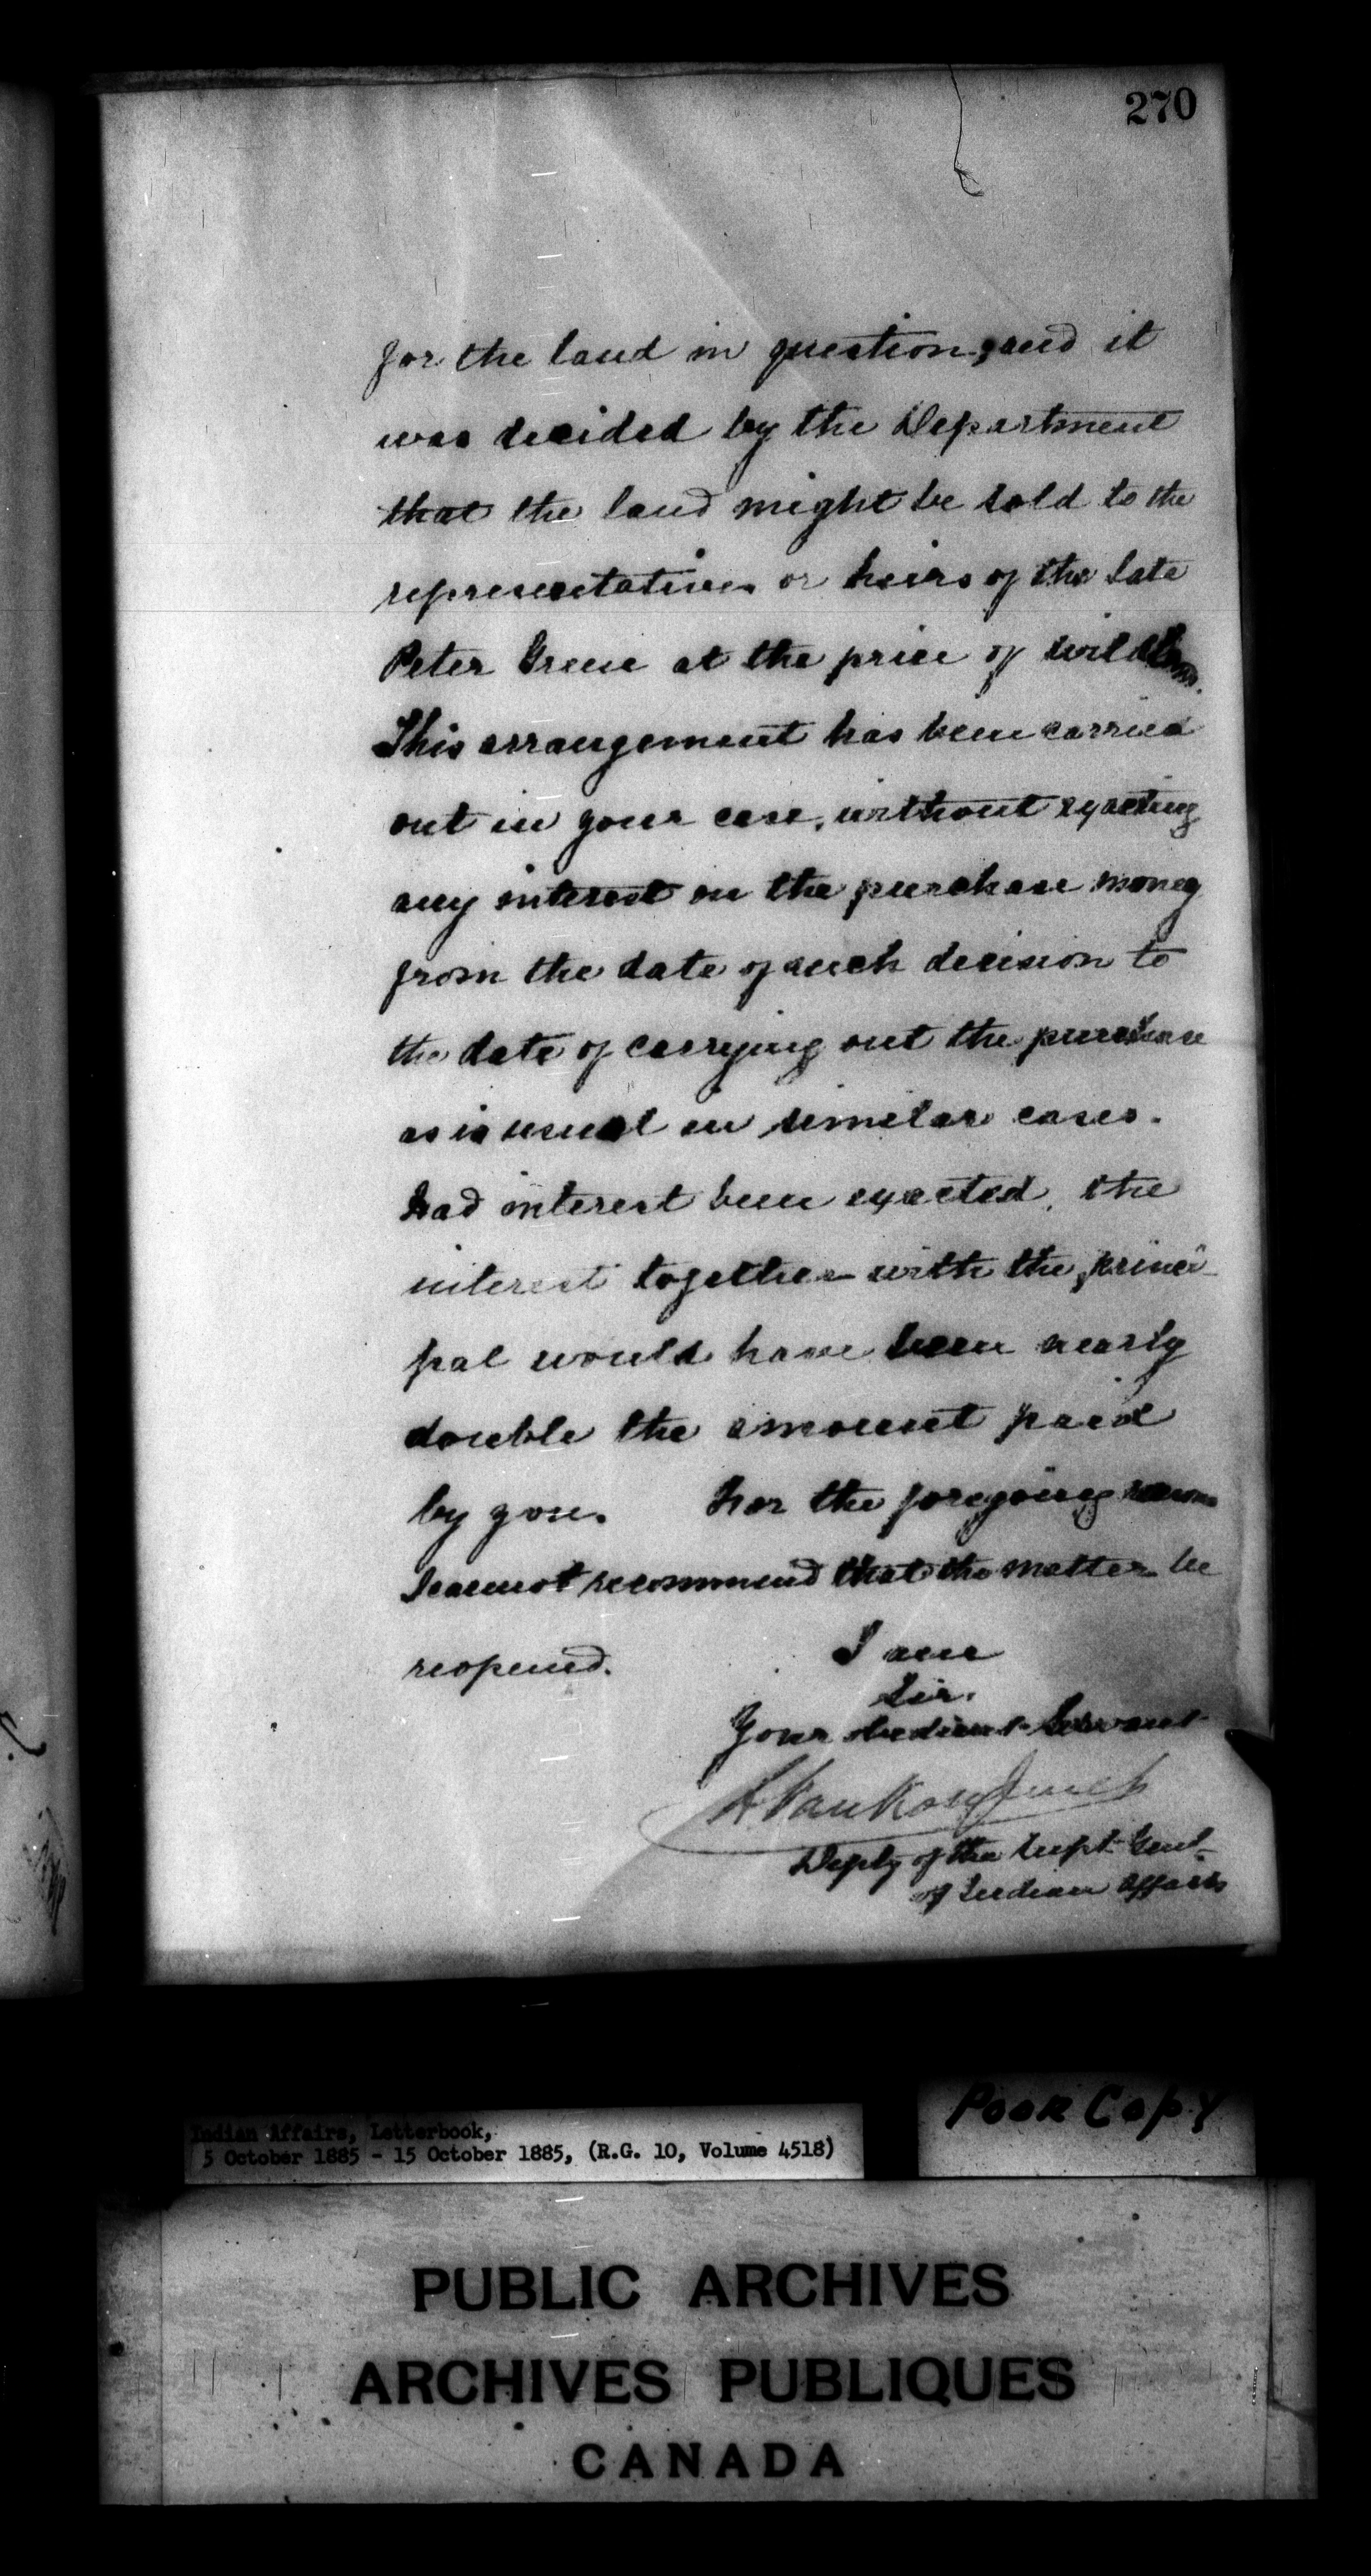 270
for the land in question, and it
was decided by the Department
that the land might be sold to the
representatives or heirs of the late
Peter Greene at the price of wild
This arrangement has been carried
out in your case, without exacting
any interest on the purchase money
from the date of such decision to
the date of carrying out the purchase
as is usual in similar cases.
Had interest been exacted, the
interest together with the princi-
pal would have been nearly
double the amount paid
by you. For the foregoing reasons
I cannot recommend that the matter be
reopened. I am
Sir.
Your obedient Servant
L. VanKoughnet
Deputy of the Supt. Genl.
of Indian Affairs
Poor Copy
Indian Affairs, Letterbook,
5 October 1885 - 15 October 1885, (R.G. 10, Volume 4518)
PUBLIC ARCHIVES
ARCHIVES PUBLIQUES
CANADA